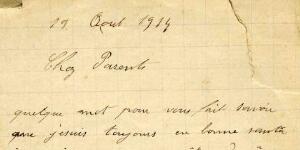 19 Aout 1914
Chez Parents
quelque mot pour vous fait savoir
que jesuis toujours en bonne santé